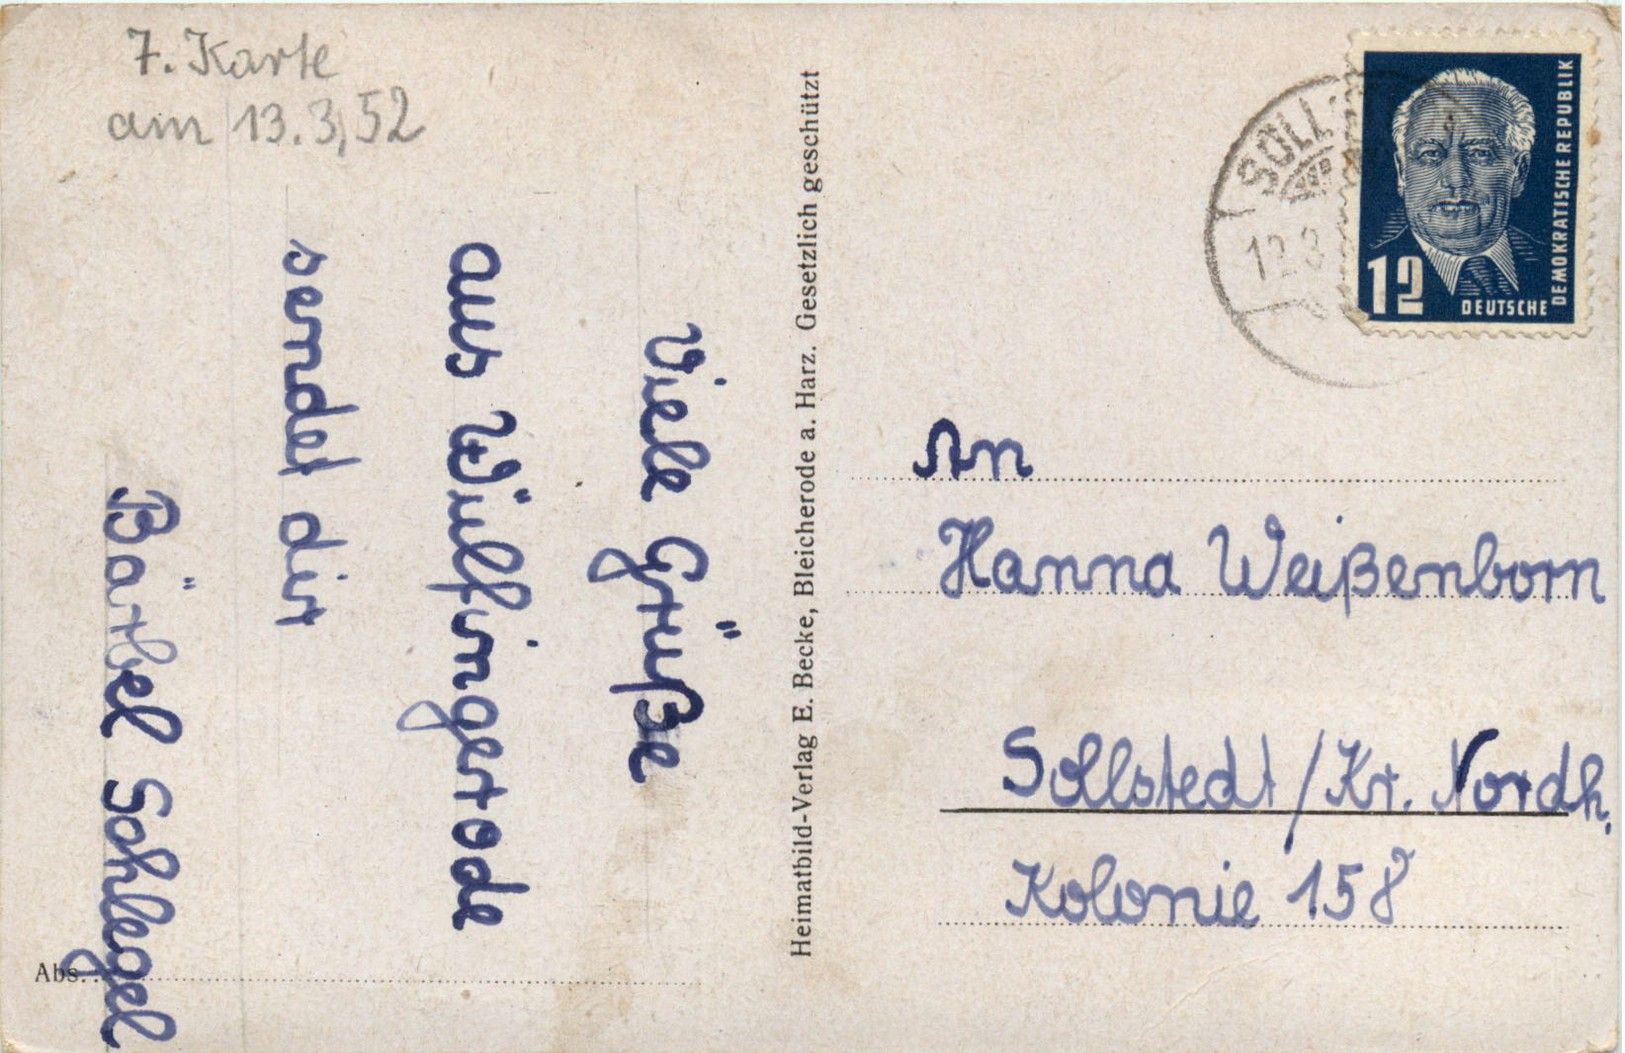 7. Karte
am 13.3,52
Viele Grüße
aus Wülfingerode
sendet dir
Bärbel Schlegel
Abs.
Heimatbild-Verlag E. Becke, Bleicherode a. Harz. Gesetzlich geschützt
SOLL
12.3
12
DEUTSCHE
DEMOKRATISCHE REPUBLIK
An
Hanna Weißenborn
Sollstedt / Kr. Nordh.
Kolonie 158